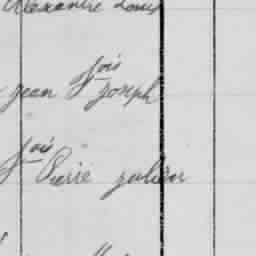 Alexandre Louis
Jean fois Joseph
fois Pierre Julien